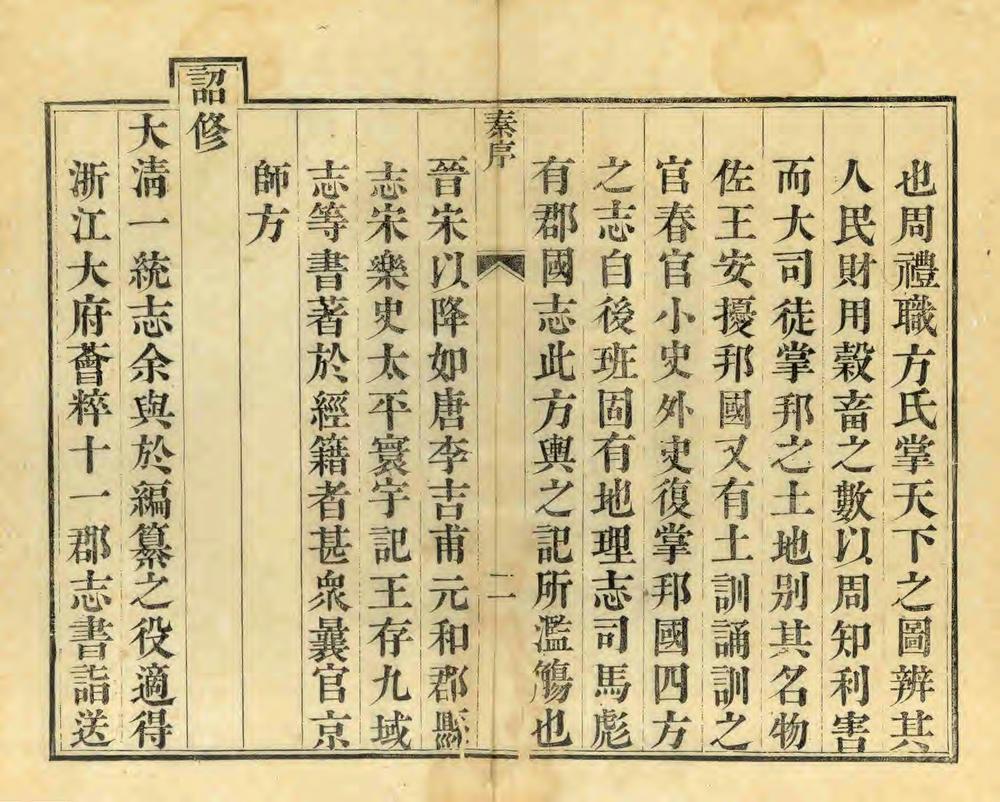 也周禮職方氏掌天下之圖辨其
人民財用穀畜之數以周知利害
而大司徒掌邦之土地别其名物
佐王安擾邦國又有土訓誦訓之
官春官小史外史復掌邦國四方
之志自後班固有地理志司馬彪
有郡國志此方輿之記所濫觴也
秦序
二
晉宋以降如唐李吉甫元和郡縣
志宋樂史太平寰宇記王存九域
志等書著於經籍者甚衆曩官京
師方
詔修
大清一統志余與於編纂之役適得
浙江大府薈粹十一郡志書詣送